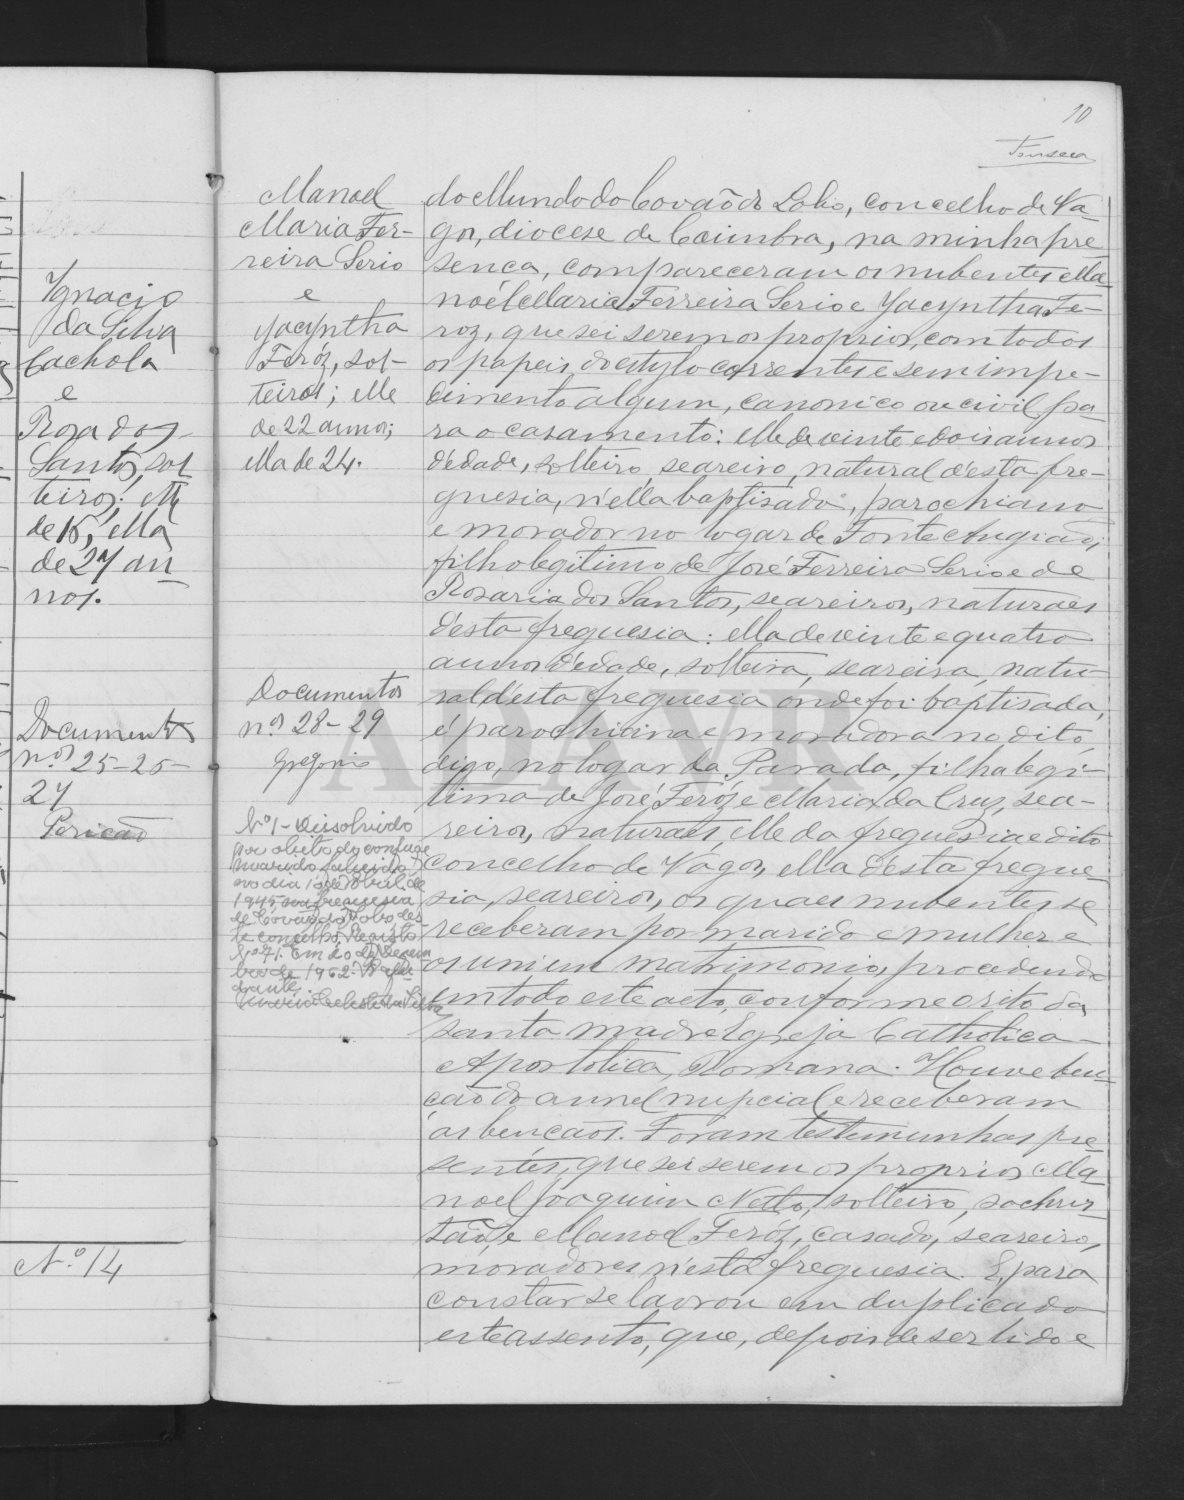 10
Fonseca
Ignacio
da Silva
Cachola
e
Rosa dos
Santos, sol
teiros; elle
de 15, ella
de 27 an
nos.
Documentos
nos 25-26-
27
Nº 14
Manoel
Maria Fer-
reira Serio
e
Jacyntha
Feróz, sol-
teiros; elle
de 22 annos;
ella de 24.
Documentos
nos 28-29
Gregorio
Nº 1 - Dissolvido
por obito do conjuge
marido falecido
no dia 16 de Abril de
1945 na freguesia
de Covão do Lobo des
te concelho, Registo
Nº 71. Em 20 de Dezem
bro de 1962.
do Mundo do Covão do Lobo, concelho de Va-
gos, diocese de Coimbra, na minha pre
sença, compareceram os nubentes Ma
noel Maria Ferreira Serio e Jacyntha Fe-
roz, que sei serem os proprios, com todos
os papeis do estylo correntes e sem impe-
dimento algum, canonico ou civil pa
ra o casamento: elle de vinte e dois annos
d'edade, solteiro, seareiro, natural d'esta fre-
guesia, n'ella baptisado, parochiano
e morador no logar de Fonte Angião,
filho legitimo de José Ferreira Serio e de
Rosaria dos Santos, seareiros, naturaes
d'esta freguesia: ella de vinte e quatro
annos d'edade, solteira, seareira, natu-
ral d'esta freguesia onde foi baptisada,
é parochiana e moradora no dito,
digo, no logar da Parada, filha legi-
tima de José Feróz e Maria da Cruz, sea-
reiros, naturaes, elle da freguesia e dito
concelho de Vagos, ella d'esta fregue-
sia, seareiros, os quaes nubentes se
receberam por marido e mulher e
os uni em matrimonio, procedendo
em todo este acto, conforme o rito da
Santa Madre Egreja Catholica
Apostolica Romana. Houve ben-
ção do annel nupcial e receberam
as bençaos. Foram testemunhas pre
sentes, que sei serem os proprios Ma
noel Joaquim Netto, solteiro, sachris
tão, e Manoel Feróz, casado, seareiro,
moradores n'esta freguesia. E, para
constar se lavrou em duplicado
este assento, que, depois de ser lido e
ADAVR